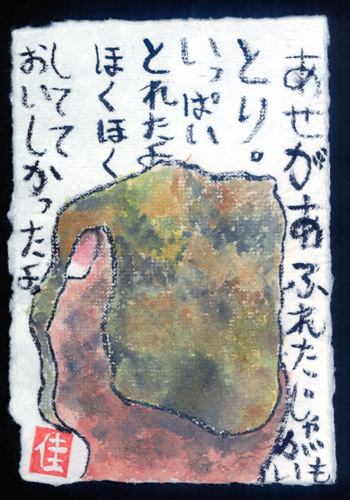 あせがあふれたにじゃがいも
とり。
いっぱい
とれたよ
ほくほく
してて
おいしかったよ。
佳